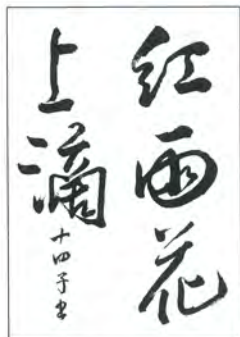 红雨花
上滴
十四子书